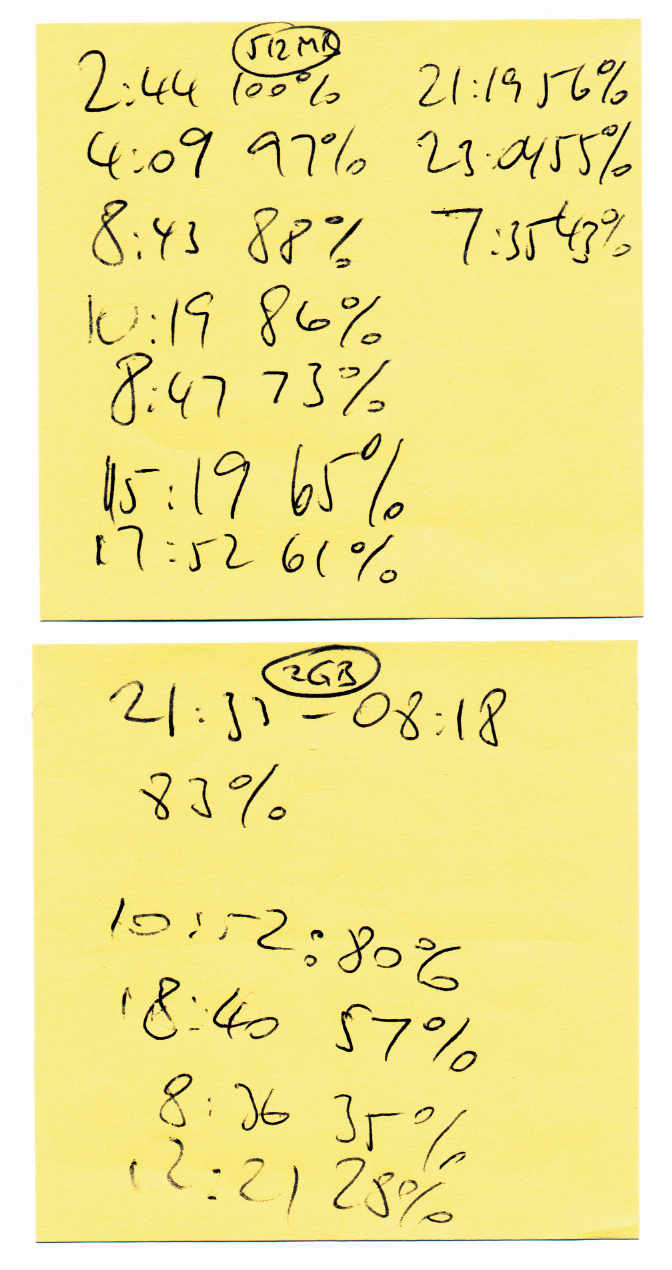 512MB
2:44 100%
4:09 97%
8:43 88%
10:19 86%
8:47 73%
15:19 65%
17:52 61%
21:19 56%
23:04 55%
7:35 43%
2GB
21:33 - 08:18
83%
10:52: 80%
18:40 57%
8:36 35%
12:21 28%